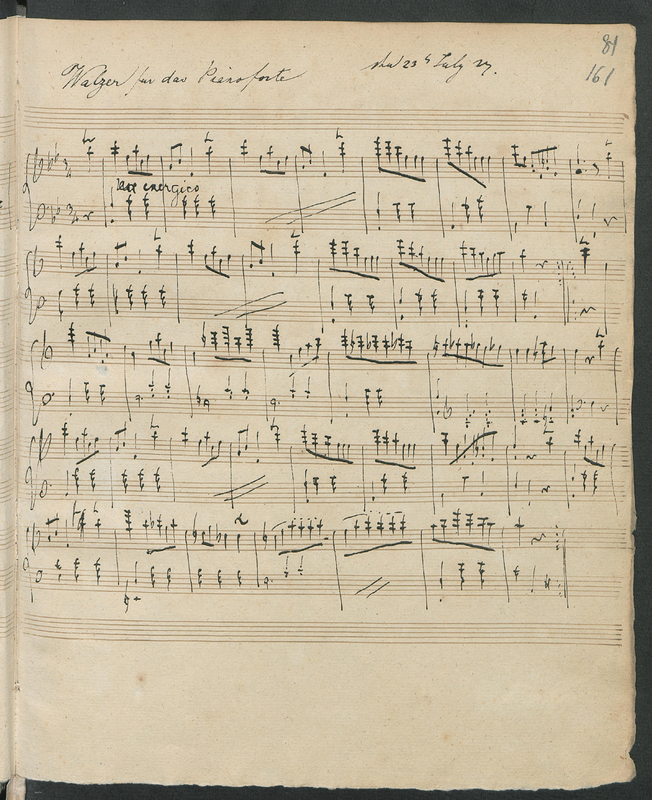 81
161
Walzer für das Pianoforte    23 July 27.
energico